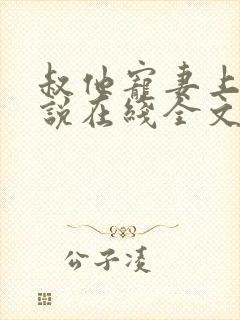 叔他寵妻上
說在綫全文
公子凌